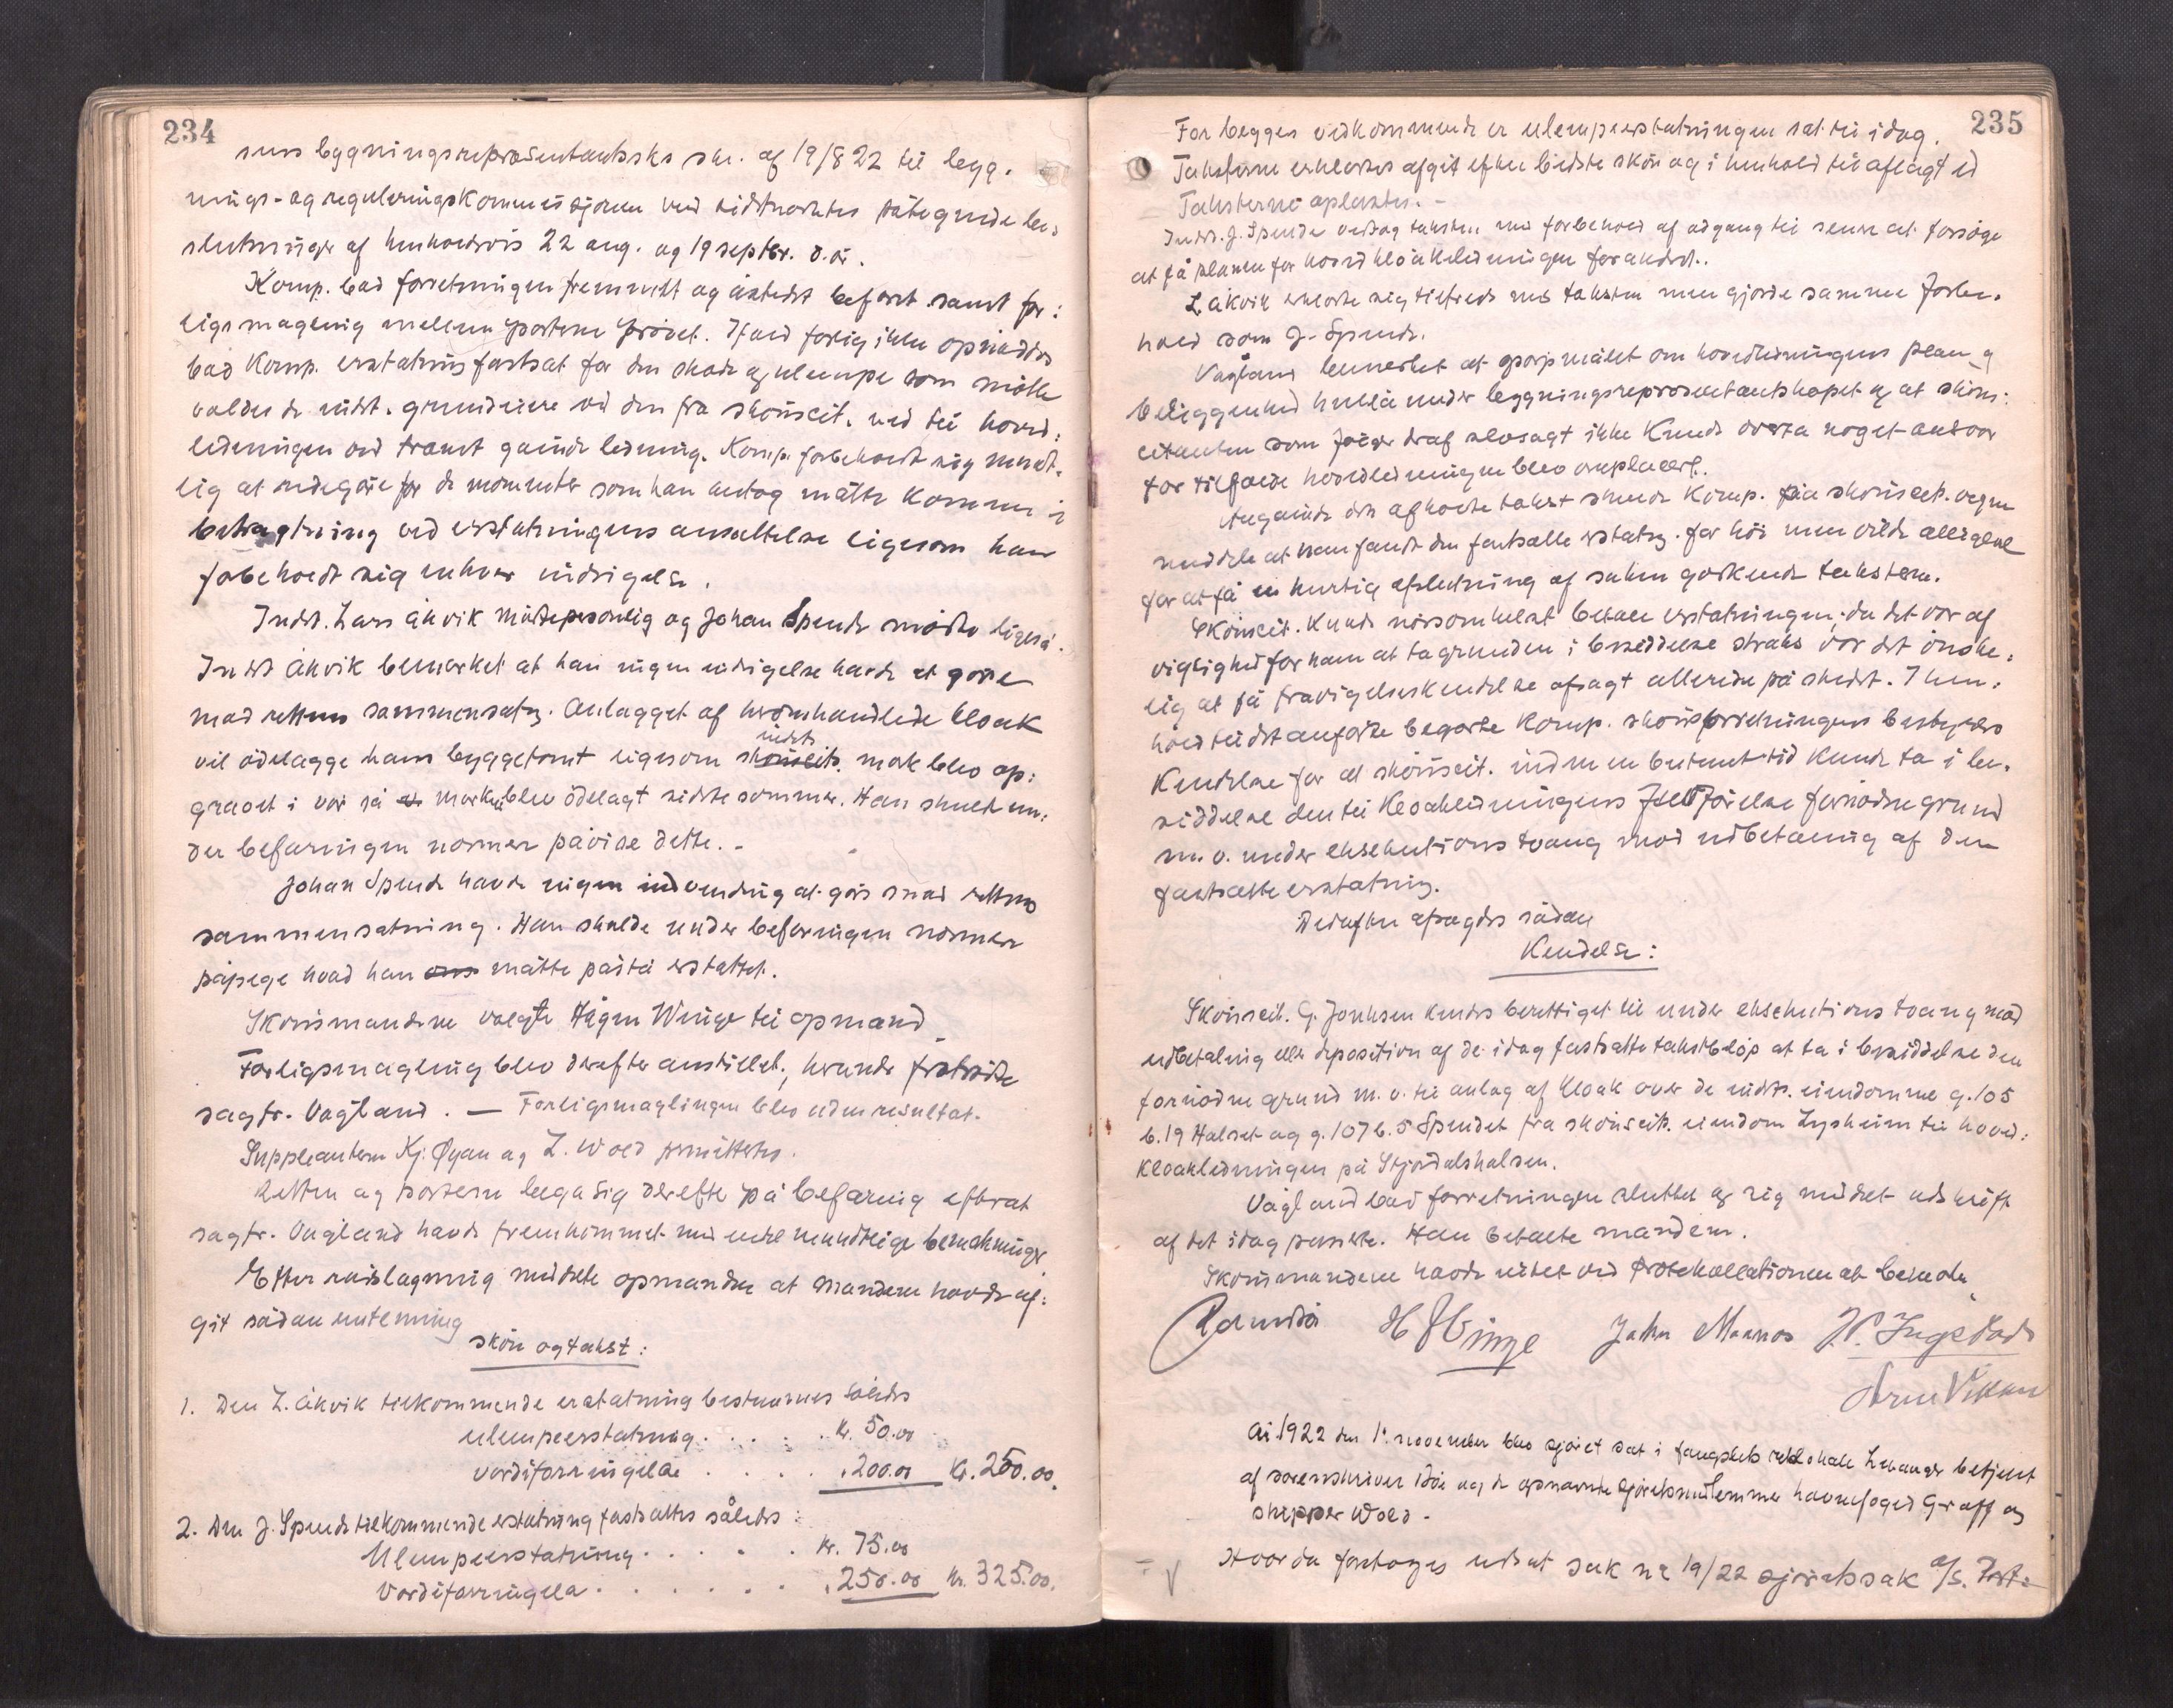 234
sens bygningsrepræsentantsks skr. af 19/8 22 til bygg.
nings- og reguleringskommissjonen ved sidstnævntes påtegnede be-
slutninger af henholdsvis 22 aug. og 19 septbr. d. år.
Komp. bad forretningen fremmett og åstedet befaret samt for:
ligsmægling mellem parterne prövet. Ifald forlig ikke opnåddes
bad Komp. erstatning fastsat for den skade og ulempe som måtte
voldes de indst. grundeiere ved den fra skönscit. ned til hoved:
ledningen ved tramt gående ledning. Komp. forbeholdt sig mundt-
lig at redegöre for de momenter som han antog måtte komme i
betragtning ved erstatningens ansættelse ligesom han
forbeholdt sig enhver indsigelse.
Indst. Lars Åkvik mödte personlig og Johan Spende mödte ligeså.
Indst Åkvik bemerket at han ingen indsigelse havde at göre
mod rettens sammensætn. Anlægget af heromhandlede kloak
vil ödelægge hans byggetomt ligesom indsts mark blev op:
gravet i vår så marken blev ödelagt sidste sommer. Han skulde un:
der befaringen nærmere påvise dette. -
Johan Spende havde ingen indvending at göre mod rettens
sammensætning. Han skulde under befaringen nærmere
påpege hvad han måtte påstå erstattet.
Skönsmændene valgte Hågen Winge til opmand
Forligsmægling blev derefter anstillet, herunder fratrådte
sagfr. Vågland. — Forligsmæglingen blev uden resultat.
Suppleanterne Kj. Øyan og L. Wold permitteres.
Retten og parterne begav sig derefter på befaring efterat
sagfr. Vågland havde fremkommet med endel mundtlige bemærkninger
Efter rådslagning meddelte opmanden at mændene havde af:
git sådan enstemmig
skön og takst:
1. Den L. Åkvik tilkommende erstatning bestemmes således
ulempeerstatning . . . . . Kr. 50.00
værdiforringelse . . . . . " 200.00 Kr. 250.00.
2. Den J. Spende tilkommende erstatning fastsættes således:
Ulempeerstatning . . . . . Kr. 75.00
Værdiforringelse . . . . . . " 250.00 Kr. 325.00.
235
For begges vedkommende er ulempeerstatningen sat til idag.
Taksterne erklæres afgit efter bedste skön og i henhold til aflagt ed
Taksterne oplæstes. -
Indst. J. Spende vedtog taksten med forbehold af adgang til senere at forsöge
at få planen for hovedkloakledningen forandret.
L. Åkvik erklærte sig tilfreds med taksten men gjorde samme forbe-
hold som J. Spende.
Vågland bemerket at spörsmålet om hovedledningens plan og
beliggenhed henlå under bygningsrepræsentantskapet og at sköns:
citanten som fölge deraf selvsagt ikke kunde overta noget ansvar
for tilfælde hovedledningen blev omplacert.
Angående den afholdte takst skulde Komp. på skönscit. vegne
meddele at han fandt den fastsatte erstatn. for höi men vilde allikevel
for at få en hurtig afslutning af saken godkjende taksterne.
Skönscit. kunde nårsomhelst betale erstatningen; da det var af
vigtighed for ham at ta grunden i besiddelse straks var det önske-
lig at få fravigelseskendelse afsagt allerede på stedet. I hen-
hold til det anförte begærte Komp. skönsforretningens bestyrers
Kendelse for at skönscit. inden en bestemt tid kunde ta i be-
siddelse den til kloakledningens fremförelse fornödne grund
m. v. under eksekutions tvang mod udbetaling af den
fastsatte erstatning.
Derefter afsagdes sådan
Kendelse:
Skönscit. G. Jonhsen kendes berettiget til under eksekutions tvang mod
udbetaling eller deposition af de idag fastsatte takstbelöp at ta i besiddelse den
fornödne grund m. v. til anlæg af kloak over de indst. eiendomme g. 105
b. 19 Halset og g. 107 b. 5 Spendet fra skönscit. eiendom Lysheim til hoved:
kloakledningen på Stjördalshalsen.
Vågland bad forretningen sluttet og sig meddelt udskrift
af det idag passerte. Han betalte mændene.
Skönsmændene havde intet ved protokollationen at bemærke
H Winge John Mærnos P. Ingstad
Arne Vikan
År 1922 den 1. november blev sjöret sat i fængslets retslokale Levanger betjent
af sorenskriver Idöe og de opnævnte sjöretsmedlemmer havnefoged Graff og
skipper Wold -
Hvorda foretoges utsat sak nr 19/22 sjöretssak A/S.